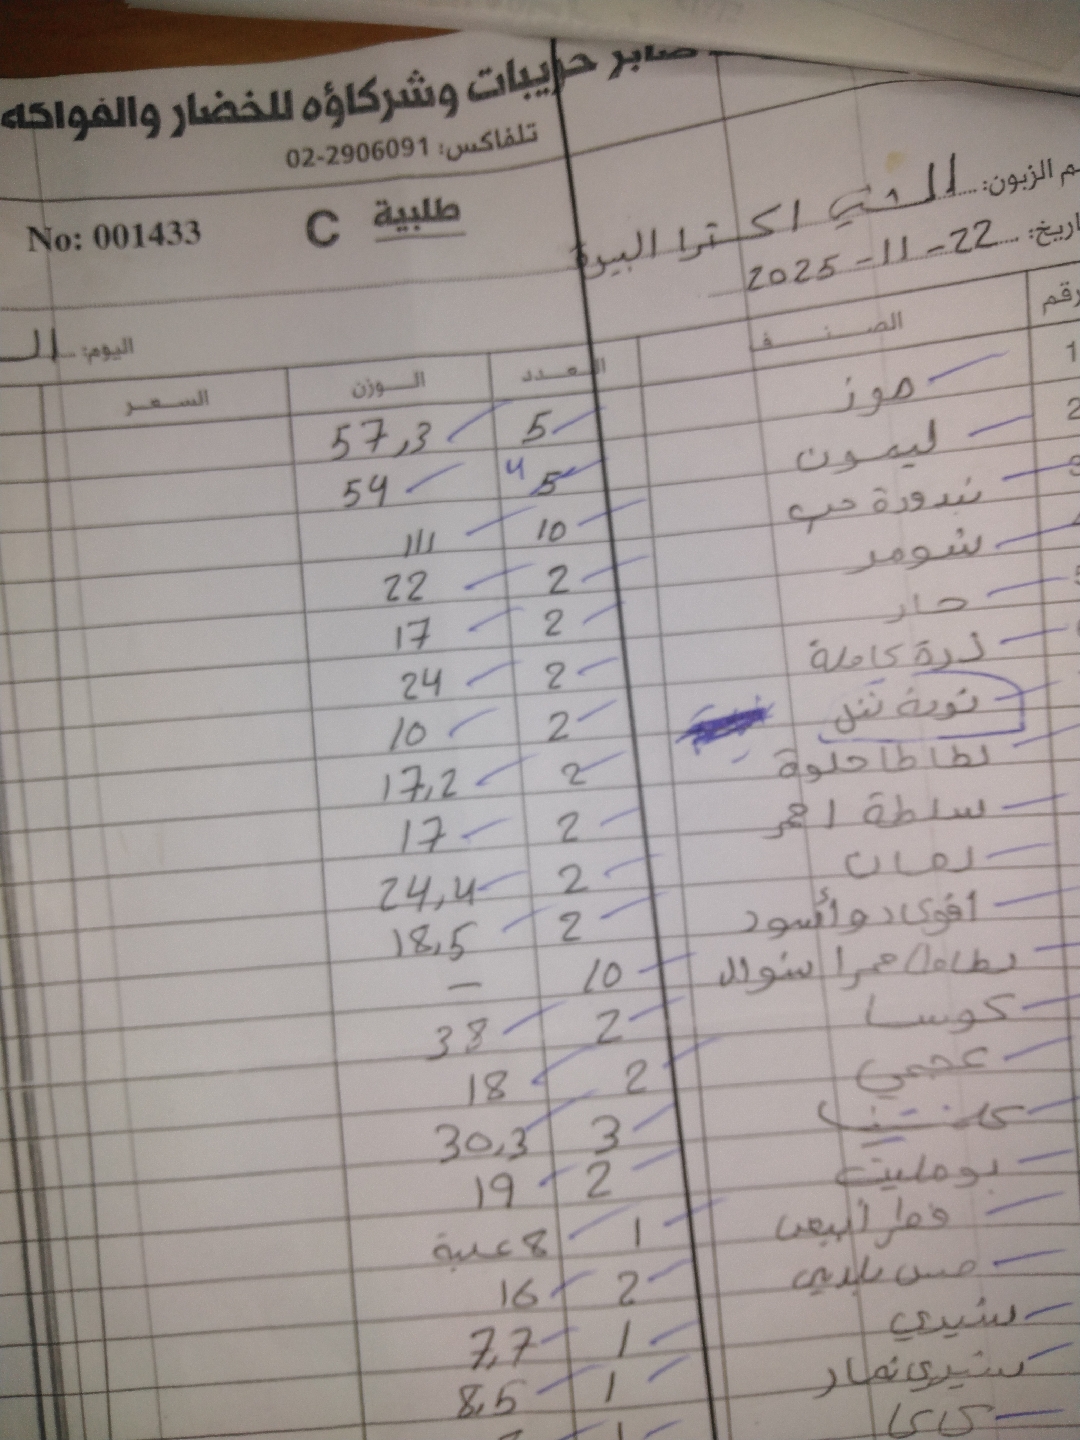 صابر حريبات وشركاؤه للخضار والفواكه
تلفاكس: 02-2906091
No: 001433 طلبية C
م الزبون: اكسترا البيرة
اريخ: 22-11-2025
اليوم: الـ
رقم الصنف العدد الوزن السعر
1 موز 5 57,3
2 ليمون 5 4 54
3 بندورة حب 10 111
4 شومر 2 22
5 حار 2 17
6 ذرة كاملة 2 24
2 10
بطاطا حلوة 2 17,2
سلطة احمر 2 17
رمان 2 24,4
افوكادو أسود 2 18,5
بطاطا حمرا شوال 10 –
كوسا 2 38
عجمي 2 18
كلمنتينا 3 30,3
بوملي 2 19
فطر أبيض 1 8 علبة
خس بلدي 2 16
شيري 1 7,7
شيري 1 8,5
كاكا 1